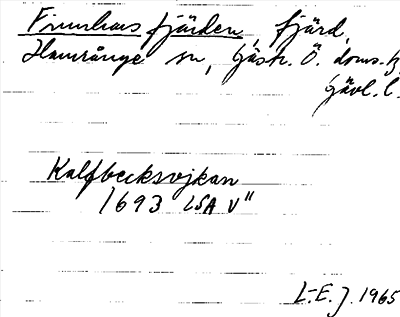 Finnharsfjärden, fjärd,
Hamrånge sn, Gästr. Ö. doms.
Gävl. l.
Kalfbecksvjkan
1693 LSA V"
L-E. J. 1965